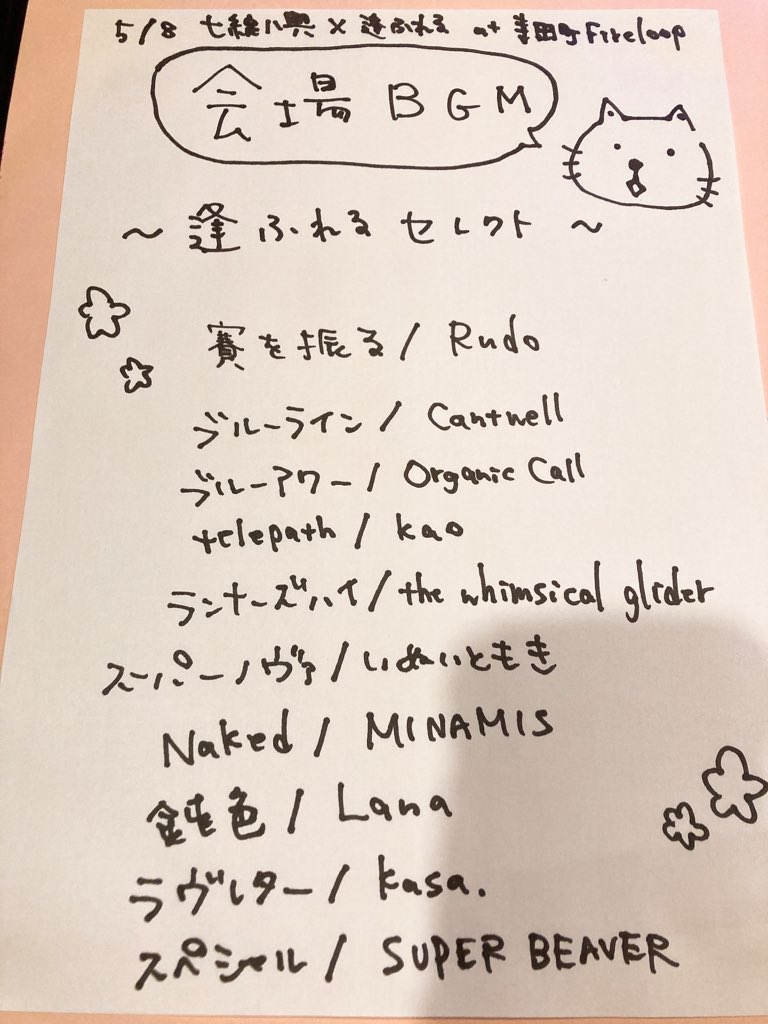 5/8 七絃小興 × 逢ふれる at 寺田町Fireloop
会場BGM
~ 逢ふれる セレクト ~
賽を振る / Rudo
ブルーライン / Cantwell
ブルーアワー / Organic Call
telepath / kao
ランナーズハイ / the whimsical glider
スーパーノヴァ / いぬいともき
Naked / MINAMIS
鈍色 / Lana
ラヴレター / kasa.
スペシャル / SUPER BEAVER